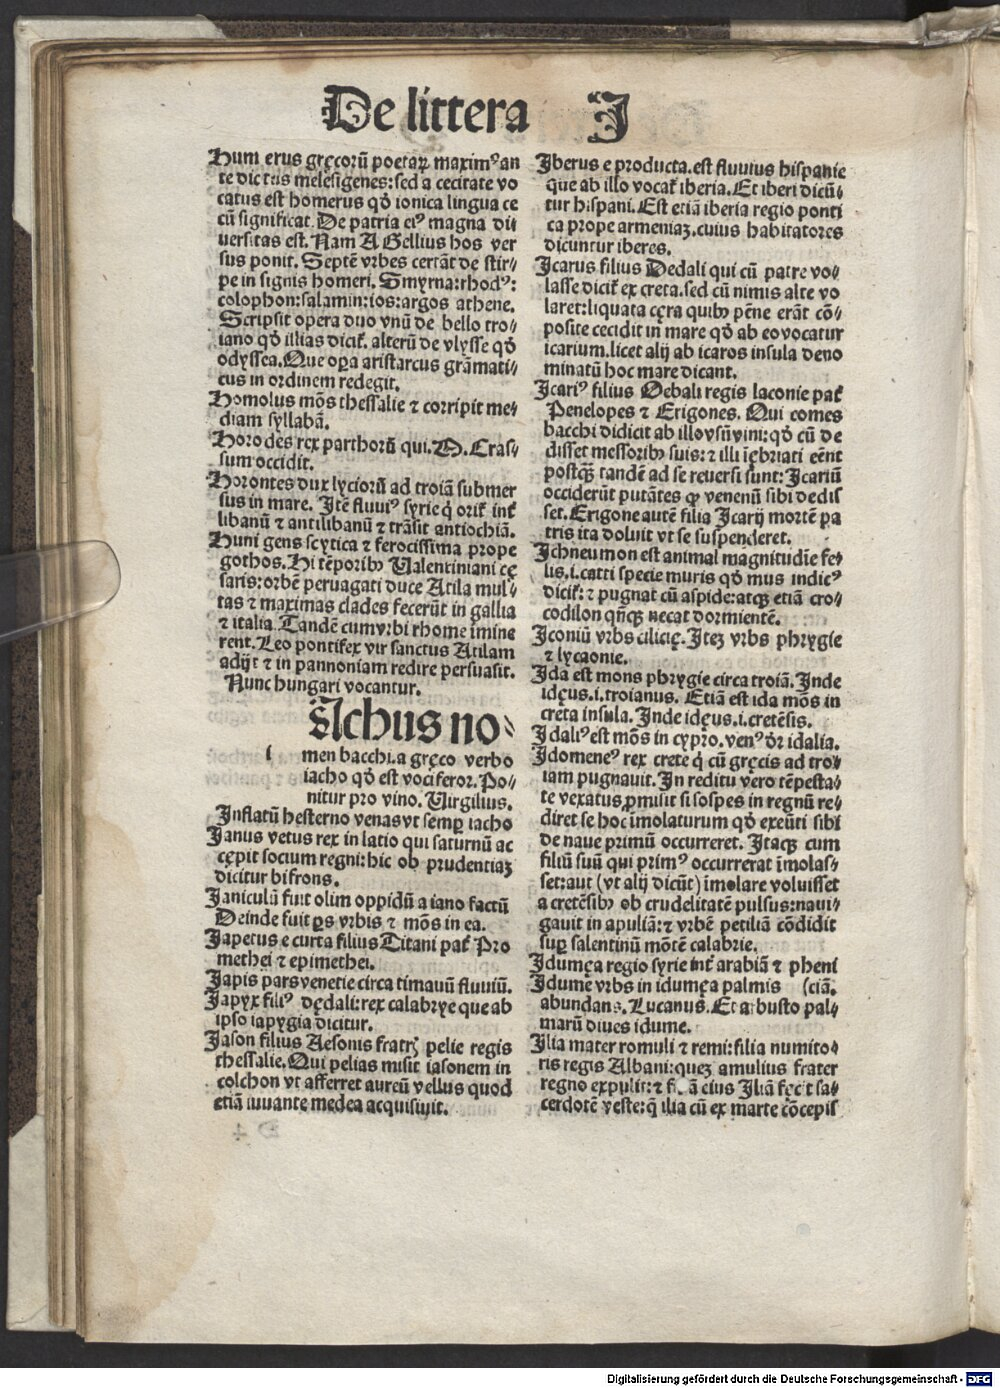 De littera J
Hum erus gręcorū poetaꝝ maximꝰ an
te dictus melesigenes: sed a cecitate vo
catus est homerus qđ ionica lingua ce
cū significat. De patria eiꝰ magna di⸗
uersitas est. Nam A Gellius hos ver
sus ponit. Septē vrbes certāt de stir⸗
pe in signis homeri. Smyrna: rhodꝰ:
colophon: salamin: ios: argos athene.
Scripsit opera duo vnū de bello tro⸗
iano qđ illias dicit̄. alterū de vlysse qđ
odyssea. Que oꝑa aristarcus grāmati⸗
cus in ordinem redegit.
Homolus mōs thessalie ⁊ corripit me⸗
diam syllabā.
Horo des rex parthorū qui. M. Cras⸗
sum occidit.
Horontes dux lyciorū ad troiā submer
sus in mare. Itē fluuiꝰ syrie q̇ orit̄ int̄
libanū ⁊ antilibanū ⁊ trāsit antiochiā.
Huni gens scytica ⁊ ferocissima prope
gothos. Hi tēporibꝰ Ualentiniani cę
saris: orbē peruagati duce Atila mul⸗
tas ⁊ maximas clades fecerūt in gallia
⁊ italia. Tandē cum vrbi rhome imine
rent. Leo pontifex vir sanctus Atilam
adijt ⁊ in pannoniam redire persuasit.
Nunc hungari vocantur.
i
Achus no⸗
men bacchi. a gręco verbo
iacho qđ est vociferor. Po⸗
nitur pro vino. Uirgilius.
Inflatū hesterno venas vt semꝑ iacho
Janus vetus rex in latio qui saturnū ac
cępit socium regni: hic ob prudentiaꝫ
dicitur bifrons.
Janiculū fuit olim oppidū a iano factū
Deinde fuit ꝑs vrbis ⁊ mōs in ea.
Japetus e curta filius Titani pat̄ Pro
methei ⁊ epimethei.
Japis pars venetie circa timauū fluuiū.
Japyx filiꝰ dędali: rex calabrye que ab
ipso iapygia dicitur.
Jason filius Aesonis fratrꝭ pelie regis
thessalie. Qui pelias misit iasonem in
colchon vt afferret aureū vellus quod
etiā iuuante medea acquisiuit.
Jberus e producta. est fluuius hispanie
que ab illo vocat̄ iberia. Et iberi dicū⸗
tur hispani. Est etiā iberia regio ponti
ca prope armeniaꝫ. cuius habitatores
dicuntur iberes.
Jcarus filius Dedali qui cū patre vo⸗
lasse dicit̄ ex creta. sed cū nimis alte vo
laret: liquata cęra quibꝰ pēne erāt cō⸗
posite cecidit in mare qđ ab eo vocatur
icarium. licet alij ab icaros insula deno
minatū hoc mare dicant.
Jcariꝰ filius Oebali regis laconie pat̄
Penelopes ⁊ Erigones. Qui comes
bacchi didicit ab illo vsū vini: qđ cū de
disset messoribꝰ suis: ⁊ illi īębriati eēnt
postqꝫ tandē ad se reuersi sunt: Jcariū
occiderūt putātes ꝙ venenū sibi dedis
set. Erigone autē filia Jcarij mortē pa
tris ita doluit vt se suspenderet.
Jchneumon est animal magnitudīe fe⸗
lis. i. catti specie muris qđ mus indicꝰ
dicit̄: ⁊ pugnat cū aspide: atqꝫ etiā cro⸗
codilon qn̄qꝫ necat dormientē.
Jconiū vrbs cilicię. Iteꝫ vrbs phrygie
⁊ lycaonie.
Jda est mons phrygie circa troiā. Inde
idęus. i. troianus. Etiā est ida mōs in
creta insula. Inde idęus. i. cretēsis.
Jdaliꝰ est mōs in cypro. venꝰ dr̄ idalia.
Jdomeneꝰ rex crete q̇ cū gręcis ad tro⸗
iam pugnauit. In reditu vero tēpesta⸗
te vexatus, ꝓmisit si sospes in regnū re⸗
diret se hoc īmolaturum qđ exeūti sibi
de naue primū occurreret. Itaqꝫ cum
filiū suū qui primꝰ occurrerat īmolas⸗
set: aut (vt alij dicūt) īmolare voluisset
a cretēsibꝰ ob crudelitatē pulsus: naui⸗
gauit in apuliā: ⁊ vrbē petiliā cōdidit
suꝑ salentinū mōtē calabrie.
Jdumęa regio syrie int̄ arabiā ⁊ pheni
Jdume vrbs in idumęa palmis (ciā.
abundans. Lucanus. Et arbusto pal⸗
marū diues idume.
Jlia mater romuli ⁊ remi: filia numito⸗
ris regis Albani: queꝫ amulius frater
regno expulit: ⁊ eius Jliā fęcit sa⸗
cerdotē veste: q̄ ilia cū ex marte cōcepis
Digitalisierung gefördert durch die Deutsche Forschungsgemeinschaft - DFG